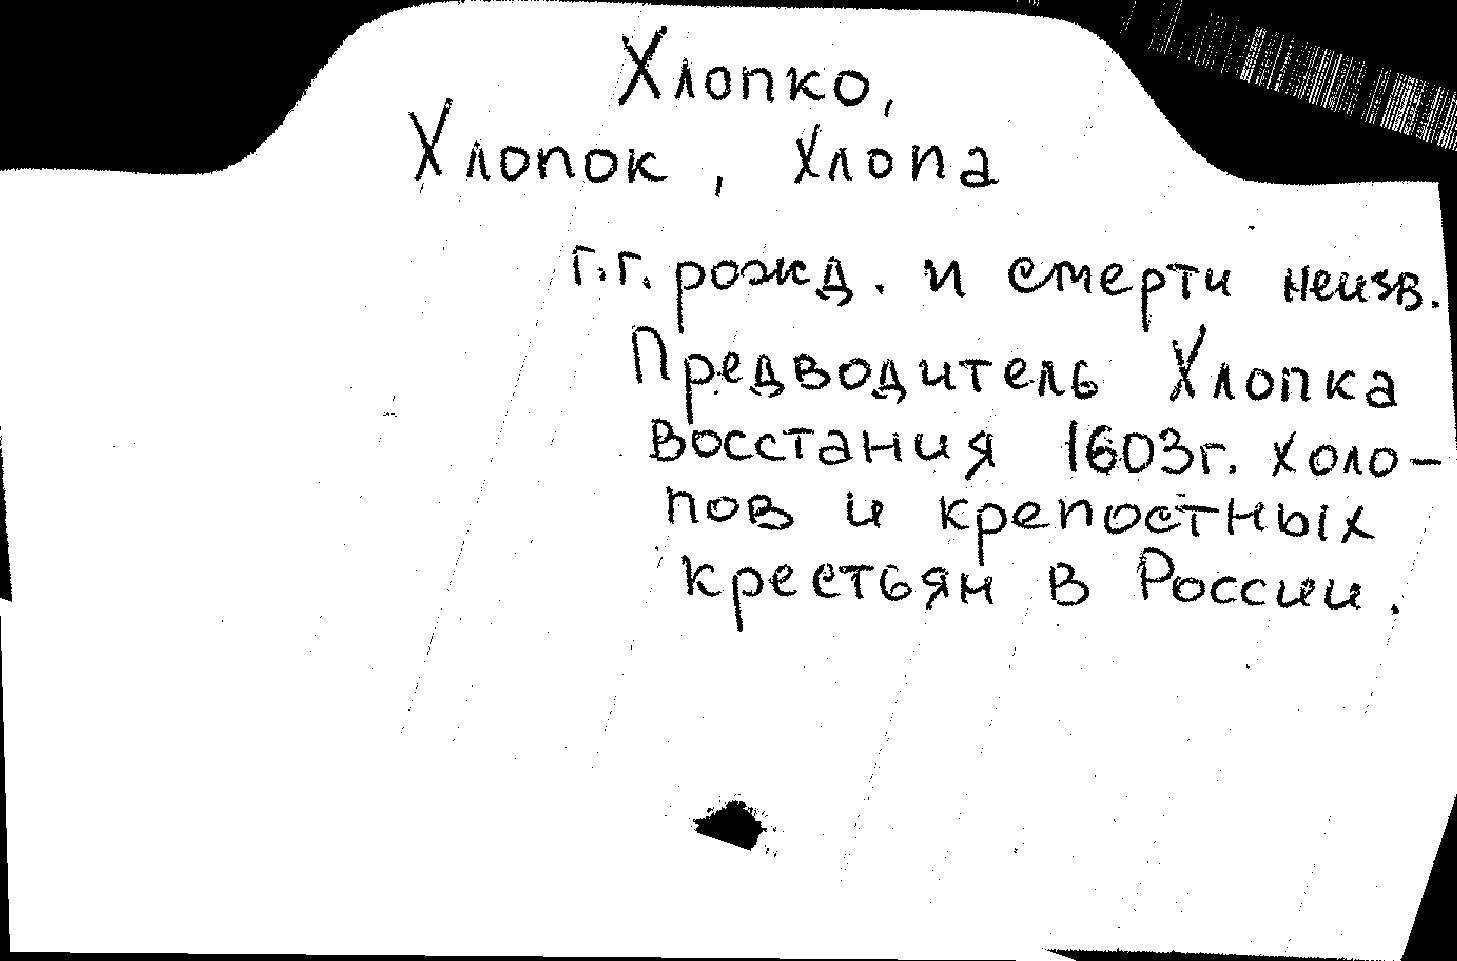 Хлопко,
Хлопок, Хлопа
г.г. рожд. и смерти неизв.
Предводитель Хлопка
восстания 1603г. холо-
пов и крепостных
крестьян в России.